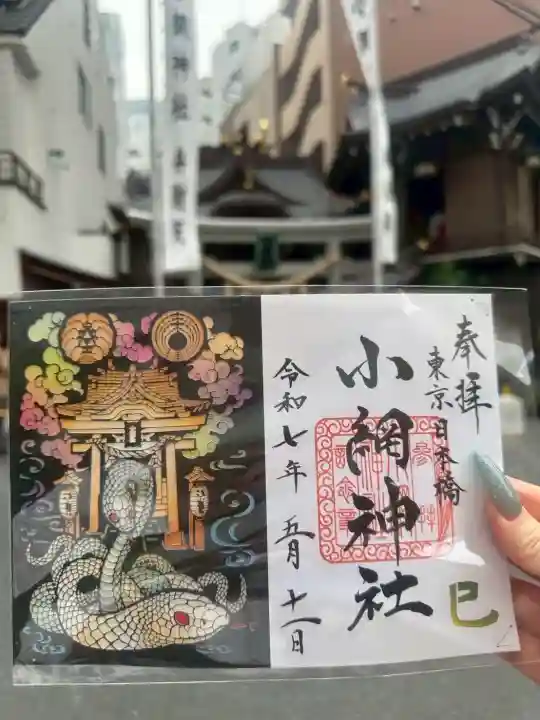 奉拝
東京日本橋
小網神社
令和七年 五月 十一日
巳